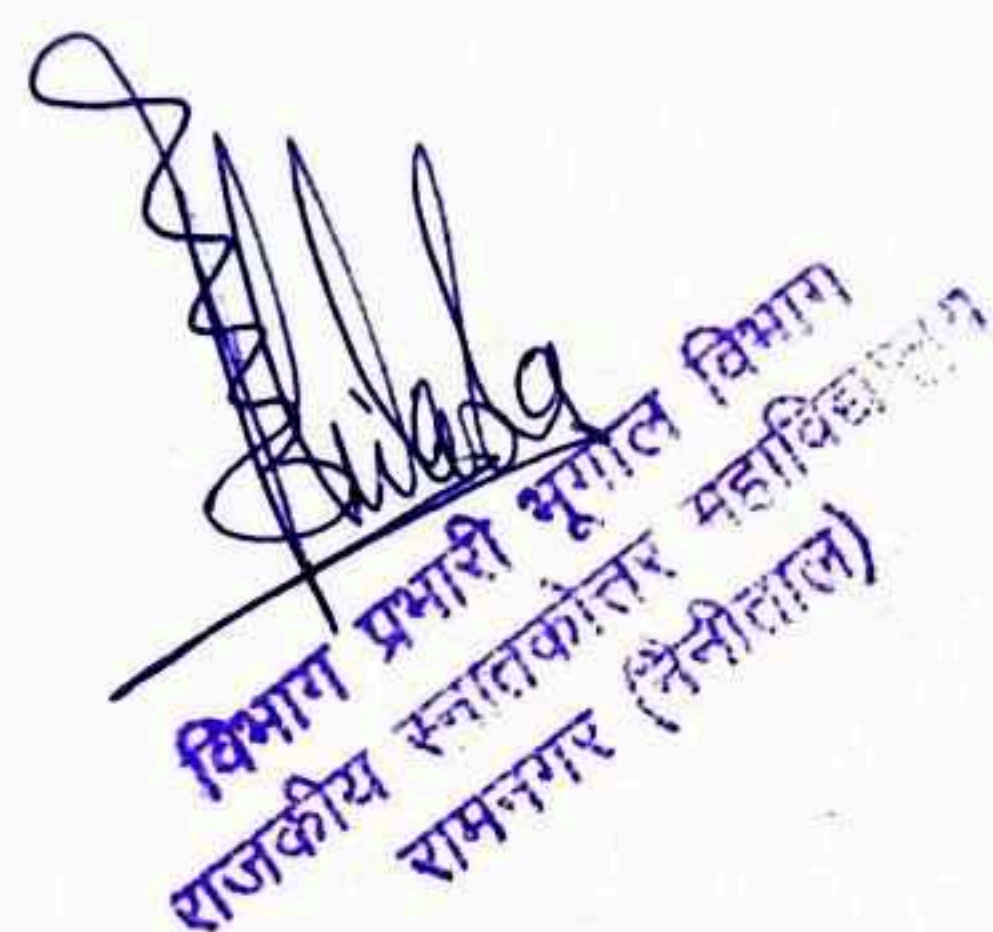 विभाग प्रभारी भूगोल विभाग
राजकीय स्नातकोत्तर महाविद्यालय
रामनगर (नैनीताल)